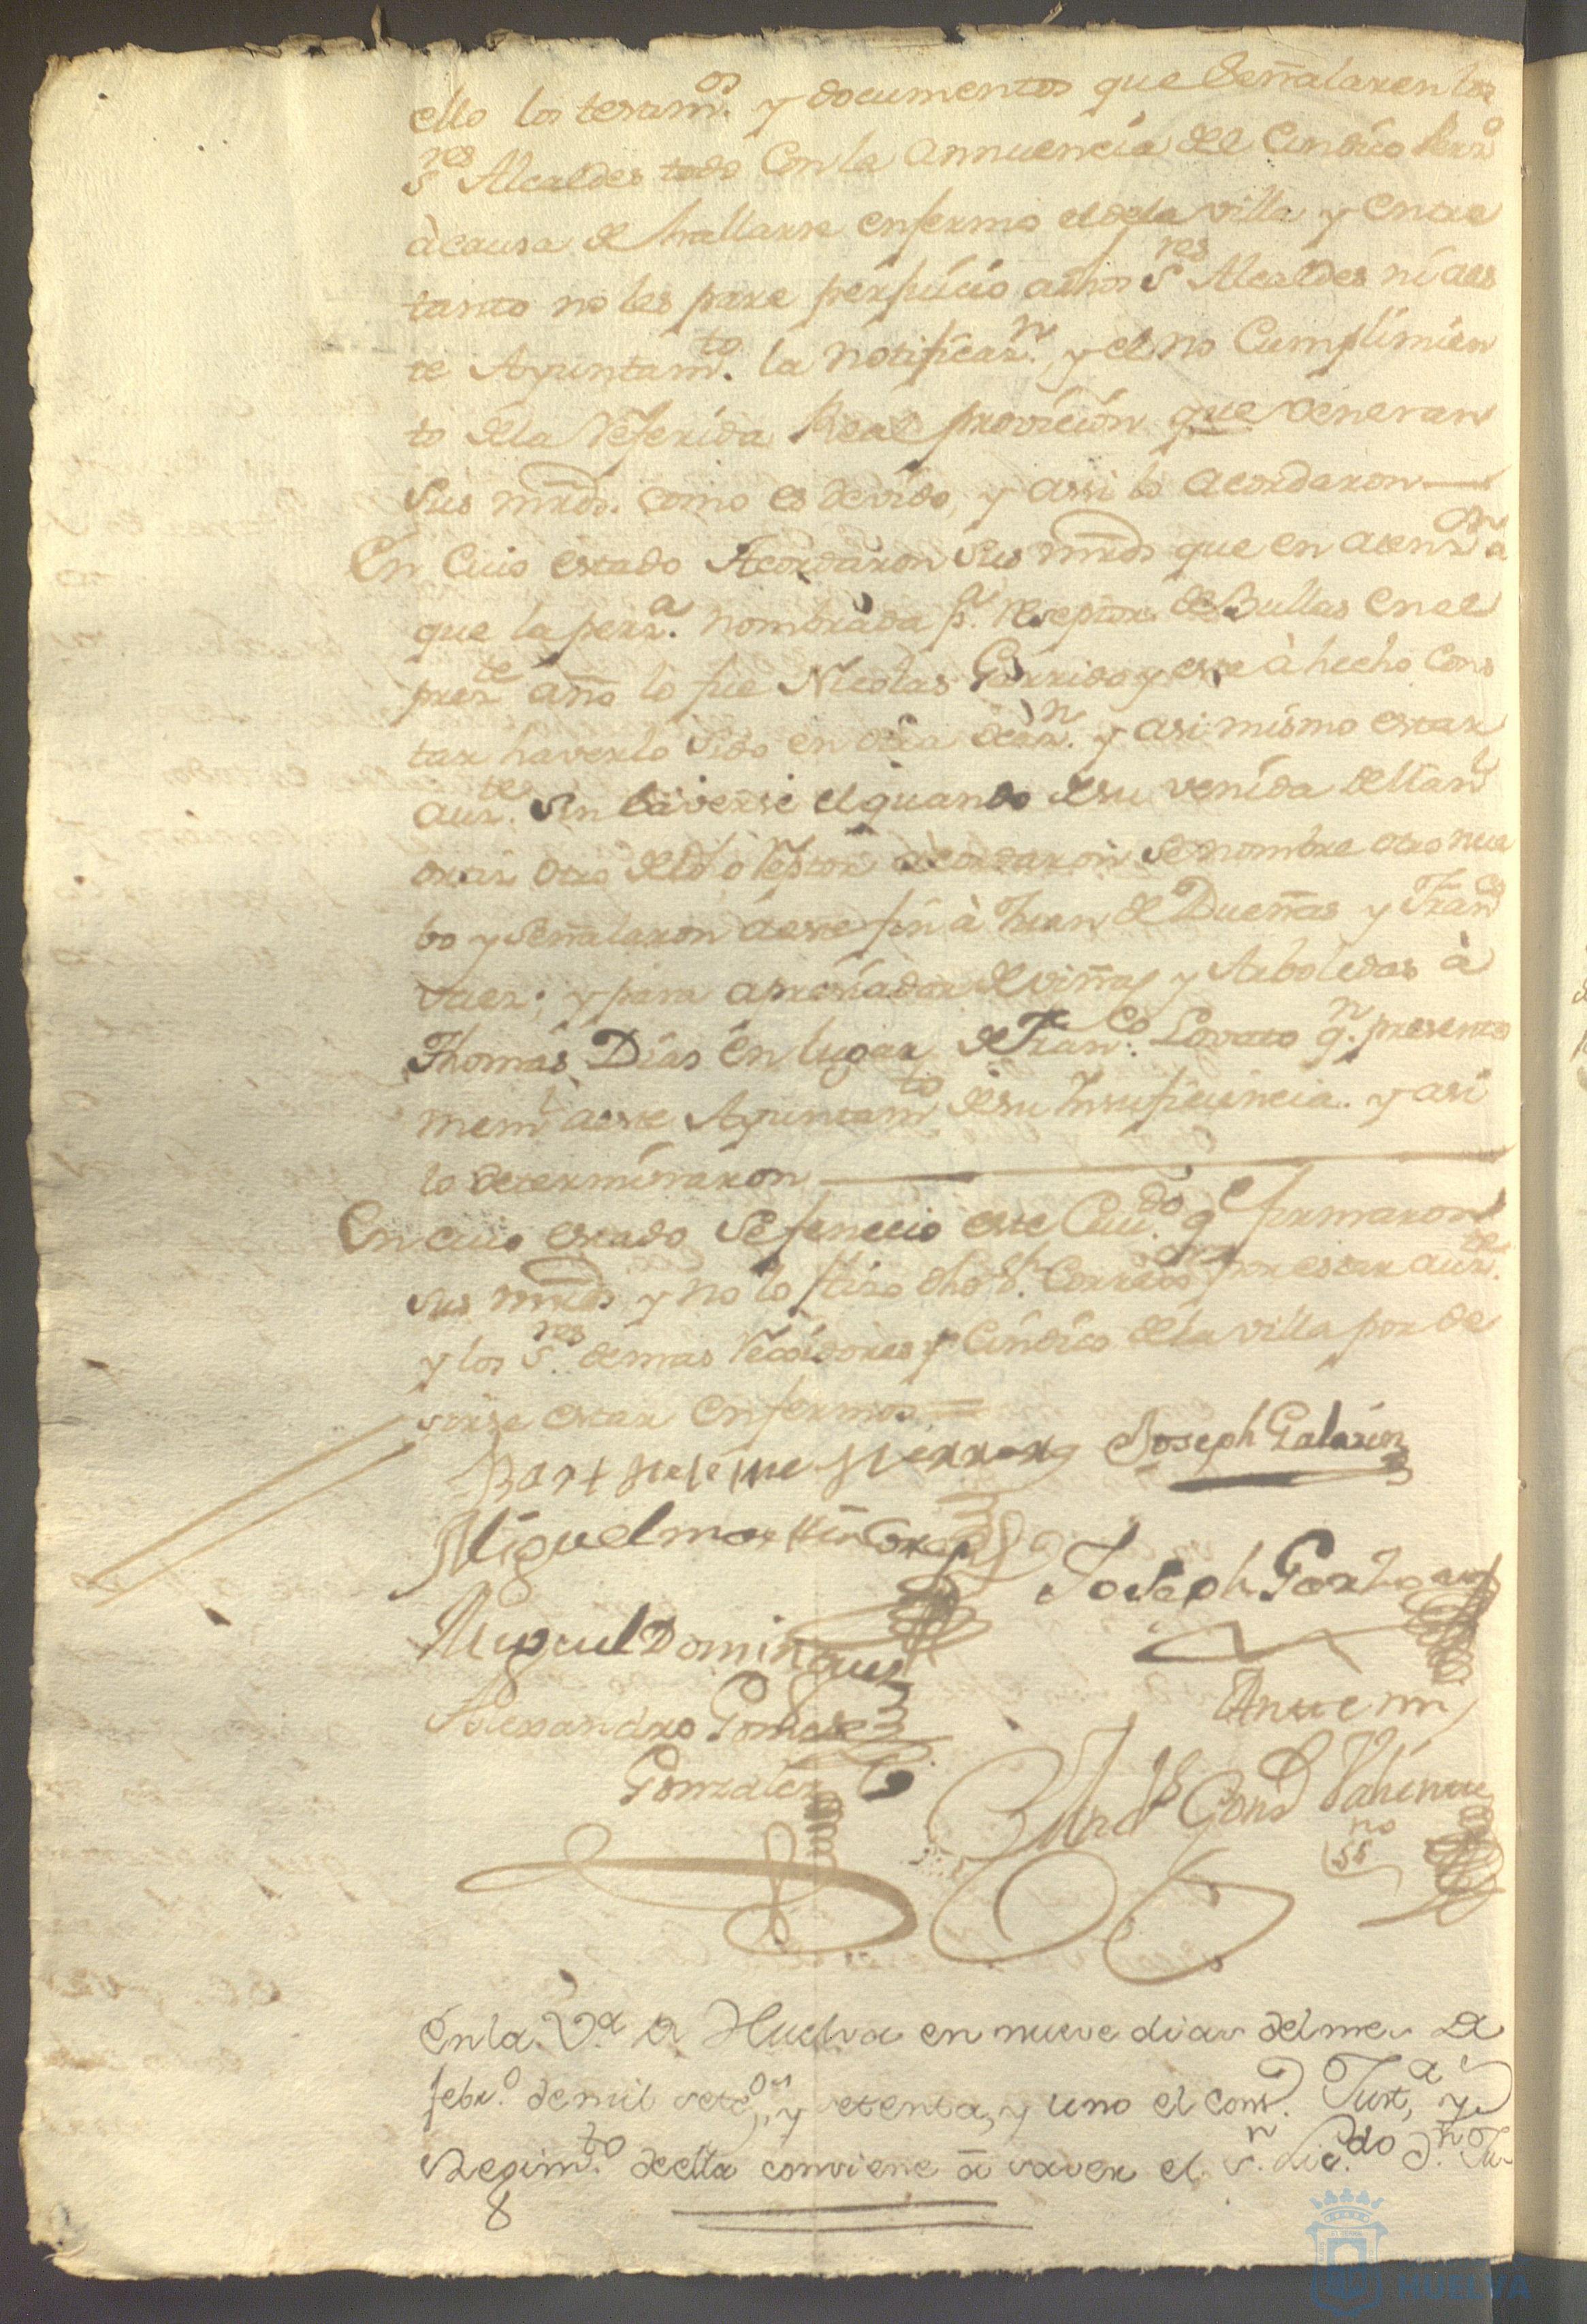 ello los testam.os y documentos que señalaren los
S.res Alcaldes todo con la annuencia del Cindico Pers.o
à causa de hallarse enfermo el de la villa y entre
tanto no les pare perjuicio a dhos S.res Alcaldes ni a es
te Ayuntam.to la notificaz.n, y el no Cumplimien
to de la referida Real provicion que veneran
sus mrds. como es devido, y assi lo acordaron
En cuio estado Acordaron sus mrds que en atenz.on a
que la perz.a nombrada p.a reseptor de Bullas en el
prez.te año lo fue Nicolas Garrido y este à hecho cons
tar haverlo sido en otra ocaz.n y asi mismo estar
auz.te sin saverse el quando de su venida
otro acordaron se nombre otro nue
bo y señalaron a este fin à Juan de Dueñas y Fran.co
Vaez; y para apreciador de viñas y Arboledas à
Thomas Dias en lugar de Fran.co Lovato q.n presento
mem.l a este Ayuntam.to de su Insuficiencia. y asi
lo determinaron
En cuio estado se fenecio este Cav.do q.e firmaron
sus mrds y no lo hizo dho S.r Corregi.or por estar auz.te
y los S.res demas Regidores y Cindico de la villa por de
sirse estar enfermos =
Bartholome Herrera Joseph Galarin
Miguel martin
Joseph Garz
Miguel Dominguez
Alexandro Gomez
Gonzalez
Ante mi
Gonz
ss.no
En la V.a de Huelva en nueve dias del mes de
febr.o de mil setec.os y setenta, y uno el cons.o Just.a y
Regim.to de ella conviene à saver el s.r Lic.do d.n Ju
8
HUELVA